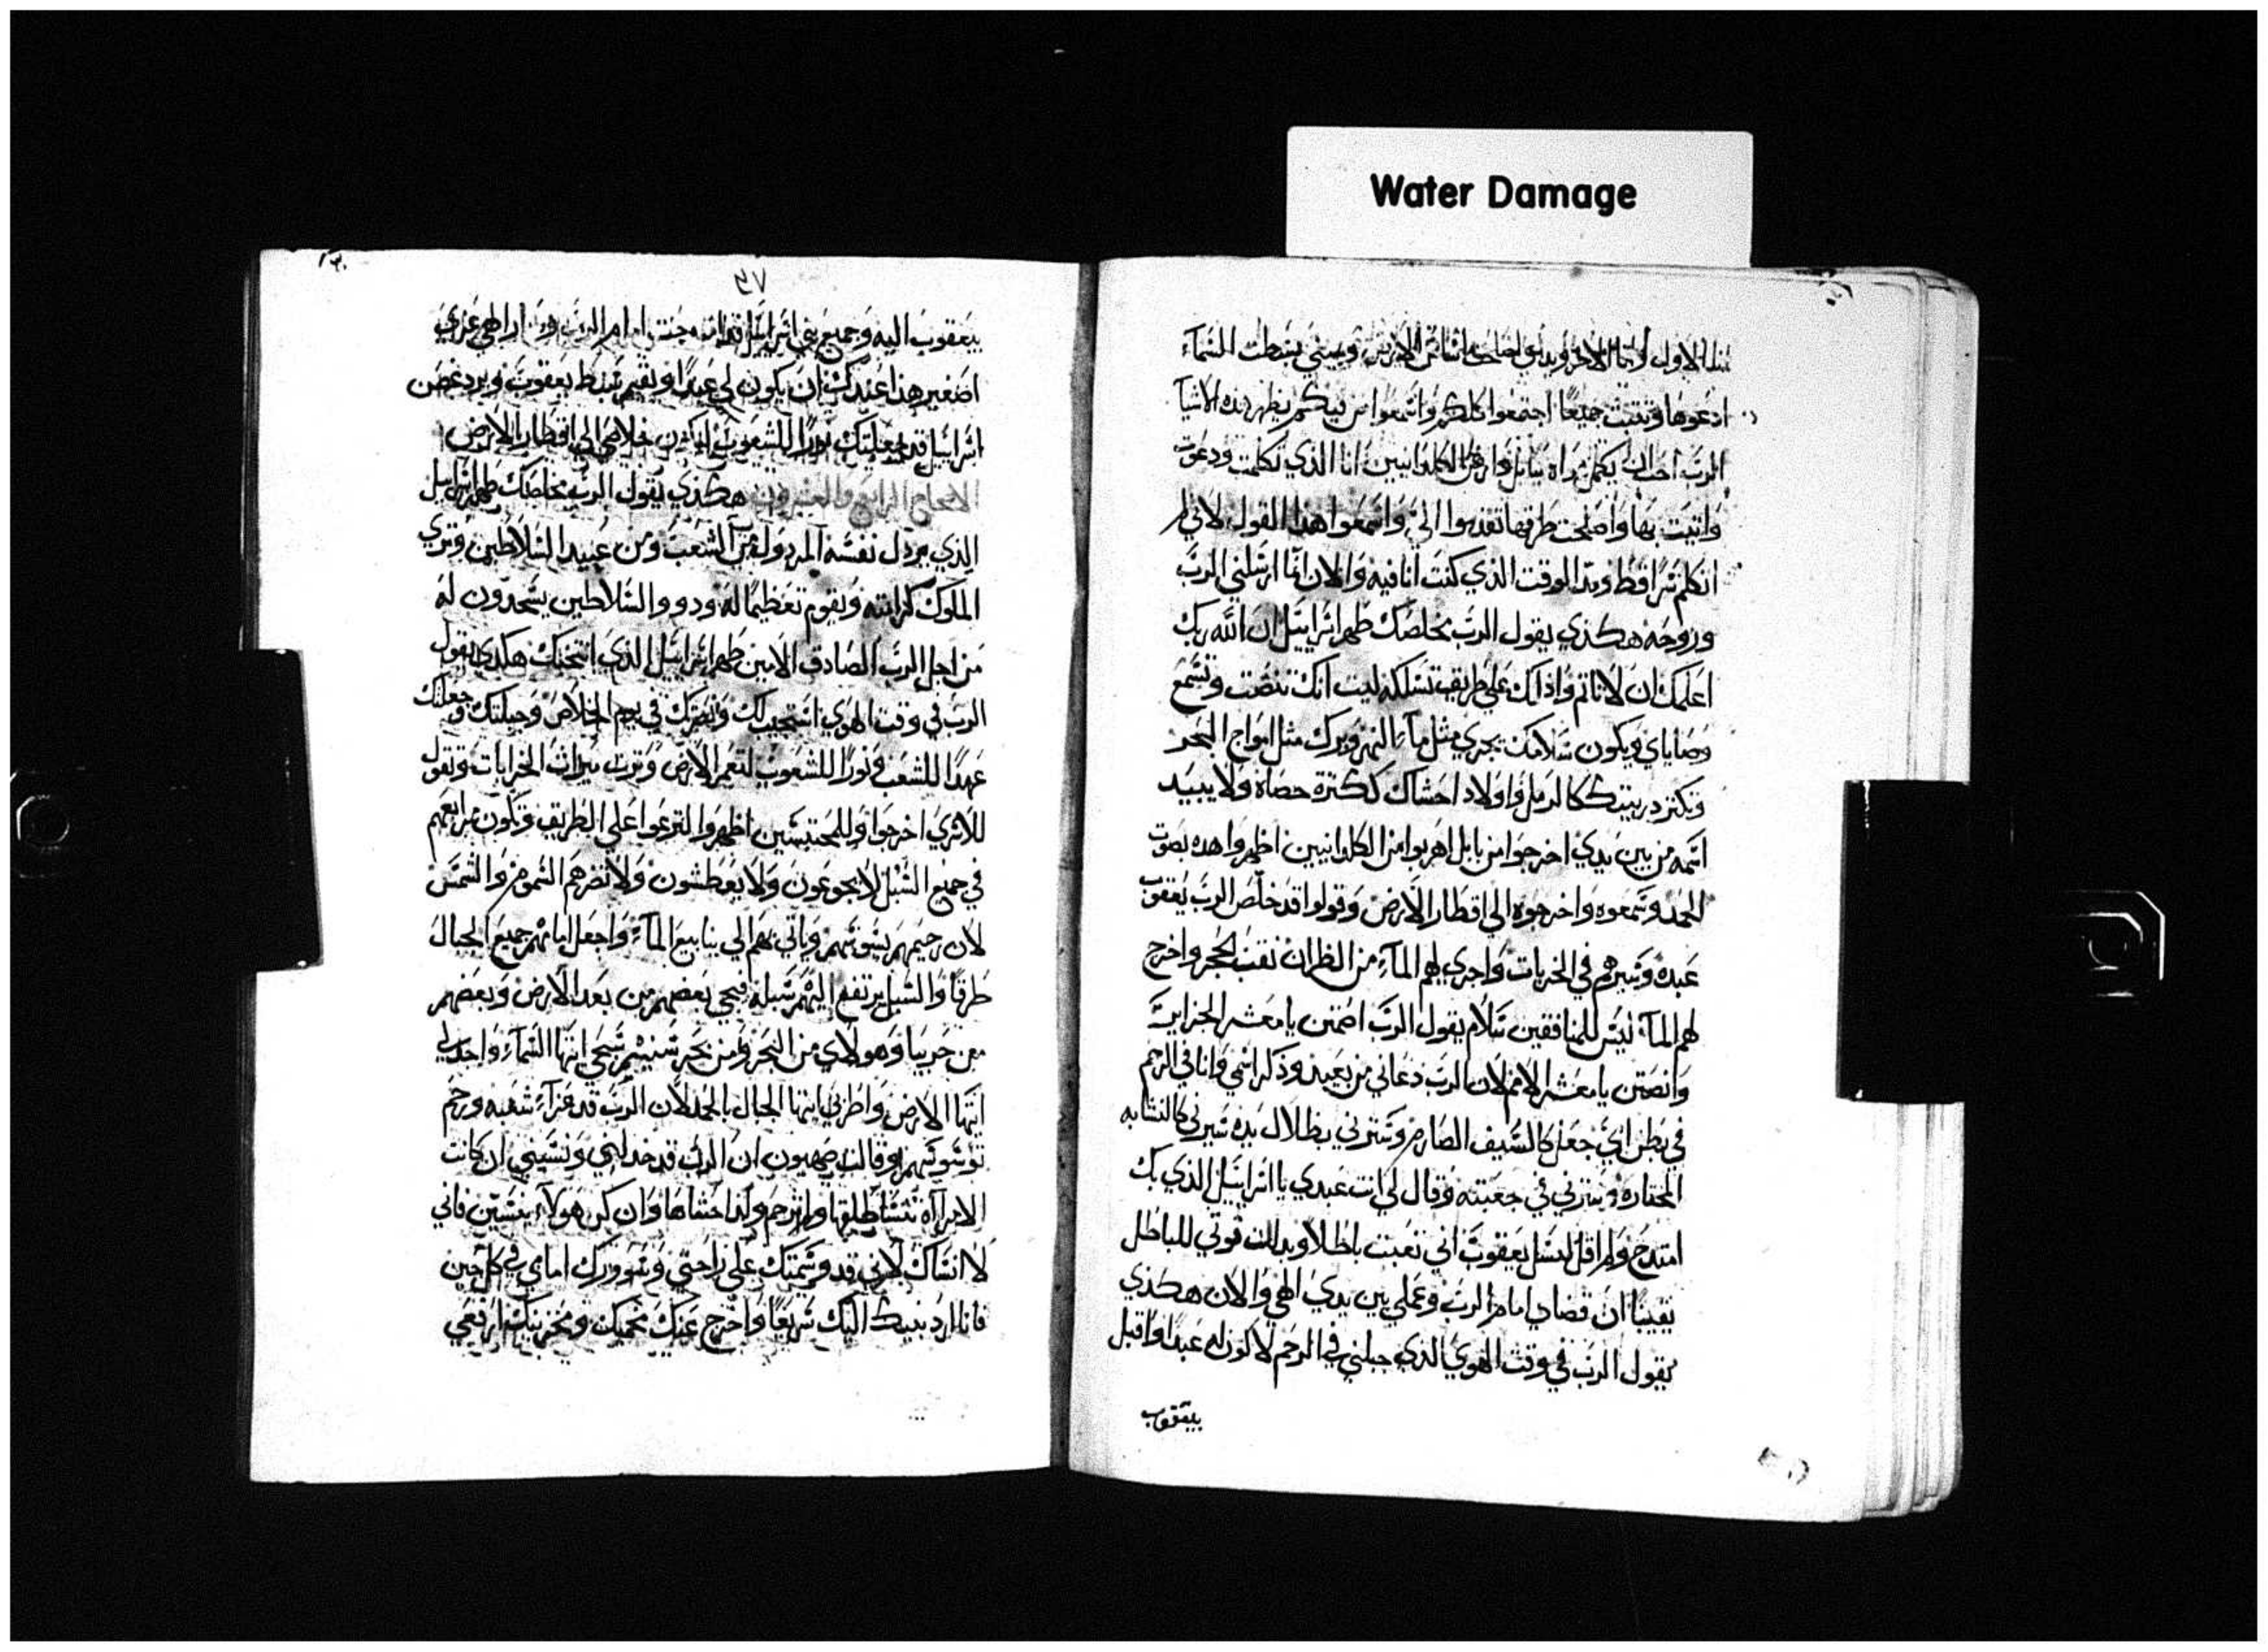 Water Damage
انا الاول وانا الاخر ويدي اتقنت اساس الارض ويميني بسطت السماء
ادعوها وتثبت جميعا اجتمعوا كلكم واسمعوا من فيكم يظهر هذه الاشيا
الرب احب ان يكمل مراه ببابل وارض الكلدانيين انا الذي تكلمت ودعوت
واتيت بها واصلحت طرقها تقدموا الي واسمعوا هذا القول لاني لم
اتكلم سرا قط وبدا الوقت الذي كنت انا فيه والان انما ارسلني الرب
وروحه هكذي يقول الرب مخلصك طهر اسراييل ان الله ربك
اعلمك ان لا تاثم واذلك على طريق تسلكه ليت انك تنصت وتسمع
وصاياي ويكون سلامك يجري مثل مآء النهر وبرك مثل امواج البحر
وتكثر دريتك كالرمل واولاد احشاك ككثرة حصاة ولا يبيد
اسمه من بين يدي اخرجوا من بابل اهربوا من الكلدانيين اظهروا هده بصوت
الحمد وسمعوه واخرجوه الى اقطار الارض وقولوا قد خلص الرب يعقوب
عبده وسيرهم في الخربات واجري لهم المآء من الظران نقب الحجر واخرج
لهم المآء ليس للمنافقين سلام يقول الرب اصمتن يا معشر الجزاير
وانصتن يا معشر الامم لان الرب دعاني من بعيد وذكر اسمي وانا في الرحم
في بطن امي جعل كالسيف الصارم وسترني بظلال يده سيرني كالنشابه
المختاره وسترني في جعبته وقال لي انت عبدي يا اسراييل الذي بك
امتدح ولم اقل لنسل يعقوب اني تعبت باطلا وبدلت قوتي للباطل
يقينا ان قضاي امام الرب وعملي بين يدي الهي والان هكذي
يقول الرب في وقت الهوي الذي جبلني في الرحم لاكون له عبدا واقبل
بيعقوب
٥٧
بيعقوب اليه وجميع بني اسراييل امام الرب الهي عزي
اصغير هذا عندك ان يكون لي عبدا وتقيم سبط يعقوب وترد غصن
اسراييل قد جعلتك نورا للشعوب لتكون خلاصي الى اقطار الارض
الاصحاح الرابع والعشرون هكذي يقول الرب مخلصك طهر اسراييل
الذي يردل نفسه المردوله من الشعب ومن عبيد السلاطين وتري
الملوك كرامته وتقوم تعظيما له ودوو السلاطين يسجدون له
من اجل الرب الصادق الامين طهر اسراييل الذي انتخبك هكدي يقول
الرب في وقت الهوي استجيب لك ونصرك في يوم الخلاص وجبلتك وجعلتك
عهدا للشعب ونورا للشعوب لتعمر الارض وترث ميراث الخرابات وتقول
للاسري اخرجوا وللمحتبسين اظهروا لترعوا على الطريق وتكون مراعيهم
في جميع السبل لا يجوعون ولا يعطشون ولا تضرهم السموم والشمس
لان رحيمهم يسوقهم وياتي بهم الى ينابيع المآء واجعل امامهم جميع الجبال
طرقا والسبل يرتفع اليهم سبله فيجي بعضهم من بعد الارض وبعضهم
من جربيا وهولاي من البحر ومن بحر سنيم سبحي ايتها السمآء واجدلي
ايتها الارض واطربي ايتها الجبال بالحمد لان الرب قد عزآء شعبه ورحم
وقالت صهيون ان الرب قد خدلني ونسيني ان كانت
الامرآاه تنسا طلقها ولم ترحم ولد احشاها وان كن هولآء ينسين فاني
لا انساك لاني قد رسمتك على راحتي وسورك امامي في كل حين
فانا ارد بنيك اليك سريعا واخرج عنك مخربيك ارفعي